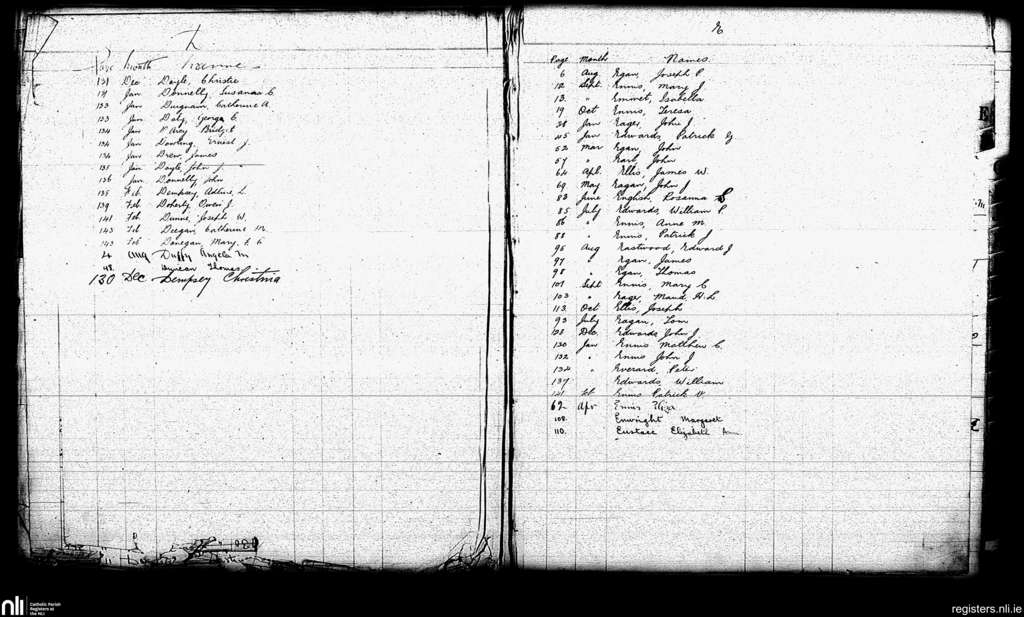 Page Month Name
121 Dec Doyle, Christie
Jan Donnelly, Susanna C
133 Jan Duignam, Catherine A.
133 Jan Daly, George C
134 Jan D'Arcy Bridget
134 Jan Dowling, Ernest J.
134 Jan Drew, James
135 Jan Doyle, John J.
136 Jan Donnelly John
138 Feb Dempsey, Adeline L
139 Feb Doherty, Owen J.
141 Feb Dunne, Joseph W.
143 Feb Deegan, Catherine M
143 Feb Donegan, Mary
4 Aug Duffy Angela M
48 Duncan Thomas
130 Dec Dempsey Christina
E
Page Month Names
6 Aug Egan, Joseph P.
12 Sept Ennis, Mary J.
13 " Emmet, Isabella
19 Oct Ennis, Teresa
38 Jan Eager, John J
45 Jan Edwards, Patrick
52 Mar Egan, John
57 " Earl, John
64 Apl. Ellis, James W.
69 May Eagan, John J
83 June English, Rosanna
85 July Edwards, William P.
86 " Ennis, Anne M.
88 " Ennis, Patrick J
95 Aug Eastwood, Edward J
97 " Egan, James
98 " Egan, Thomas
101 Sept Ennis, Mary C
103 " Eager, Maud H. L
113 Oct Ellis, Joseph
93 July Eagan, Tom
128 Dec. Edwards John J
130 Jan Ennis Matthew C.
132 " Ennis John J
134 " Everard, Peter
137 Edwards, William
141 Ennis Patrick V
62 Apr Ennis Eliza
108. Enwright Margaret
110. Eustace Elizabeth Ann
nli Catholic Parish
Registers at
the NLI
registers.nli.ie